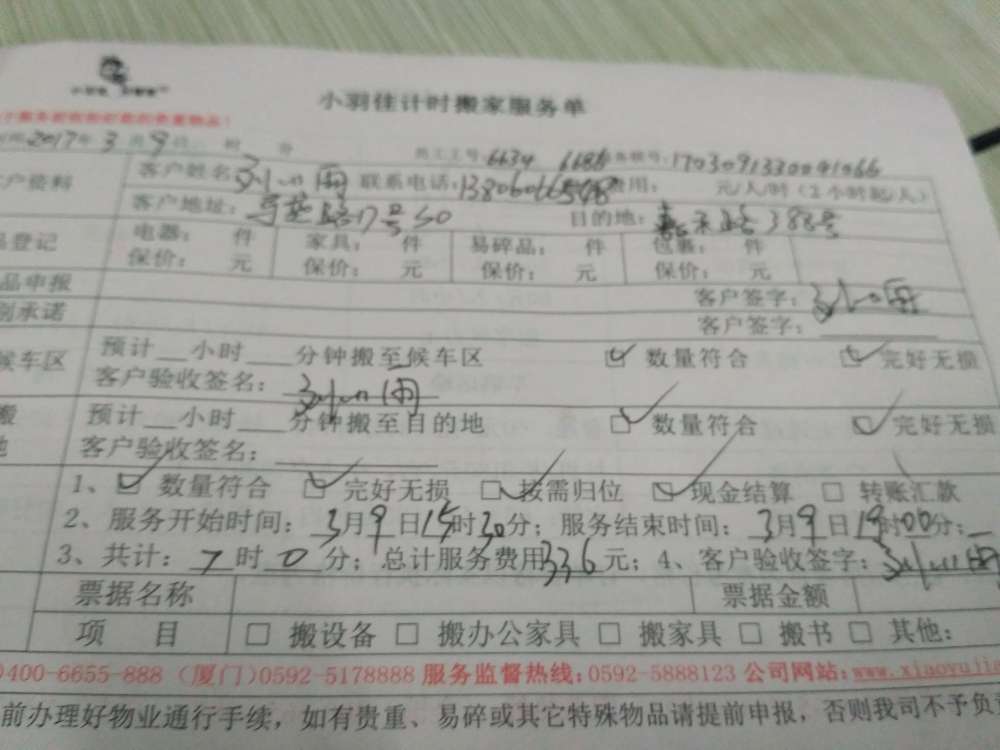 小羽佳计时搬家服务单
2017年3月9日 时 分 员工工号:6634 6686
客户资料 客户姓名: 联系电话: 费用: 元/人/时(2小时起/人)
客户地址: 17号50 目的地: 嘉禾路388号
品登记 电器: 件 家具: 件 易碎品: 件 包裹: 件
保价: 元 保价: 元 保价: 元 保价: 元
品申报 客户签字:
别承诺 客户签字:
候车区 预计__小时__分钟搬至候车区 ☑ 数量符合 ☑ 完好无损
客户验收签名:
搬 预计__小时__分钟搬至目的地 ☑ 数量符合 ☑ 完好无损
地 客户验收签名:
1、☑ 数量符合 ☑ 完好无损 ☑ 按需归位 ☑ 现金结算 □ 转账汇款
2、服务开始时间: 3月9日15时30分; 服务结束时间: 3月9日19时00分;
3、共计: 7时0分; 总计服务费用336元; 4、客户验收签字:
票据名称 票据金额
项 目 □ 搬设备 □ 搬办公家具 □ 搬家具 □ 搬书 □ 其他:
400-6655-888 (厦门)0592-5178888 服务监督热线:0592-5888123 公司网站:www.xiaoyujia
前办理好物业通行手续,如有贵重、易碎或其它特殊物品请提前申报,否则我司不予负